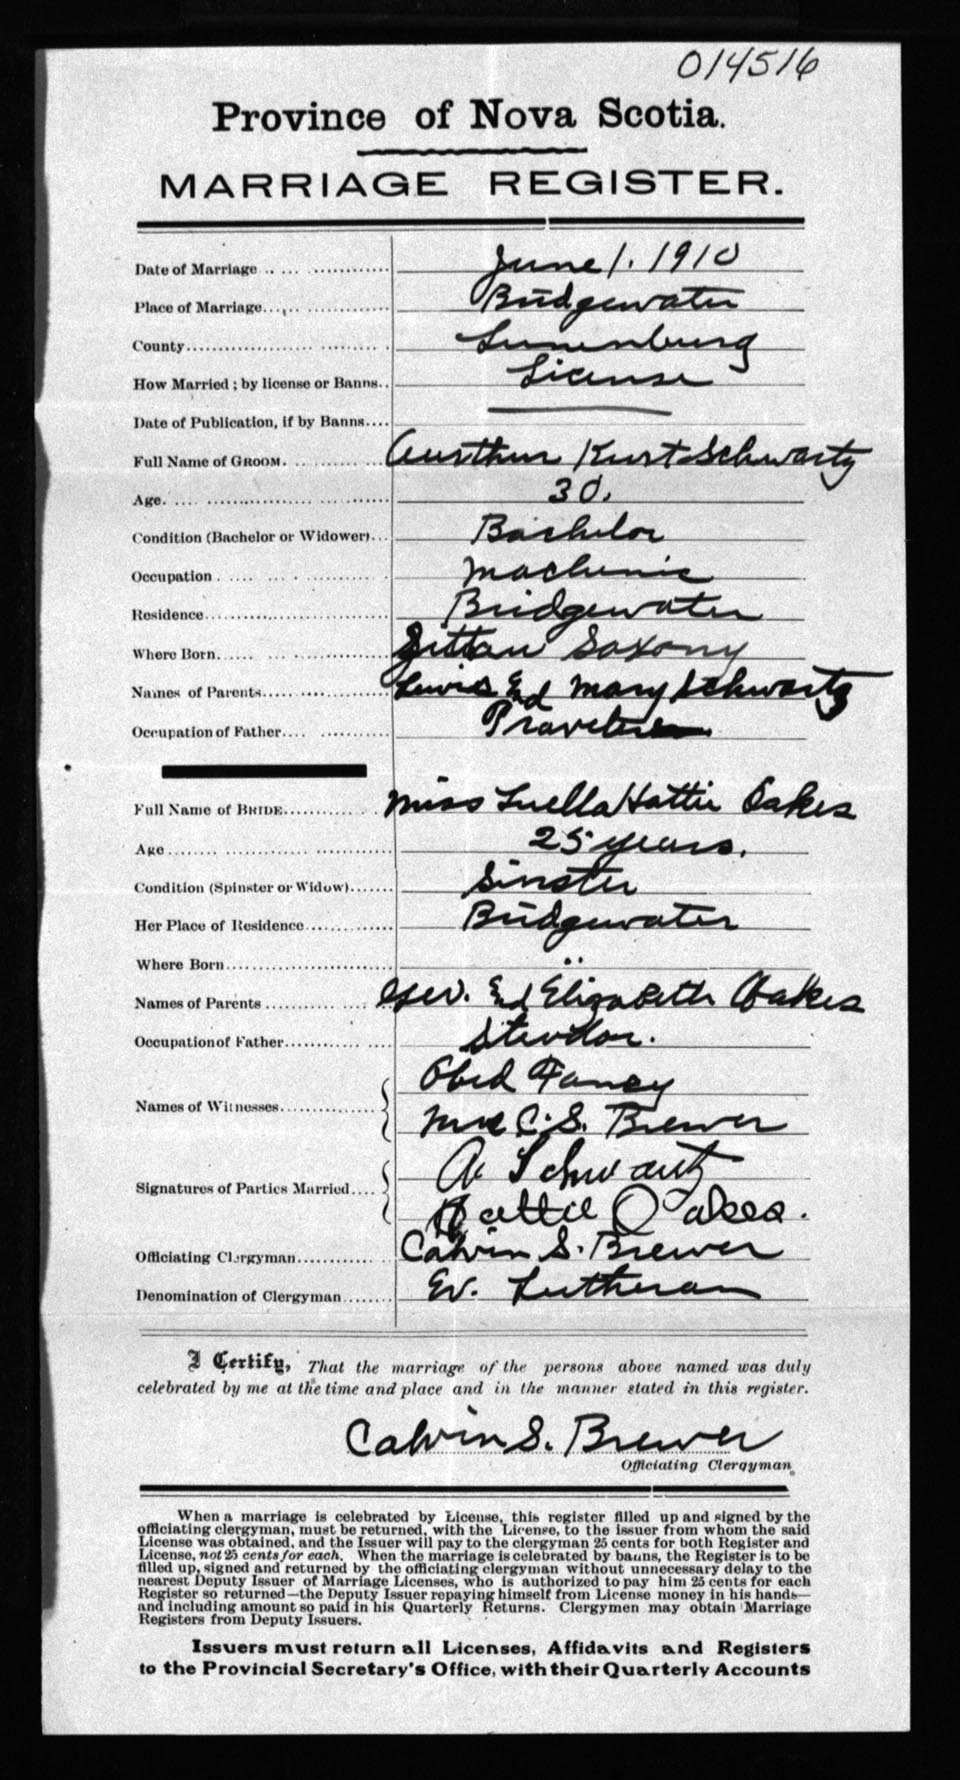 014516
Province of Nova Scotia.
MARRIAGE REGISTER.
Date of Marriage June 1. 1910
Place of Marriage Bridgewater
County Lunenburg
How Married ; by license or Banns. License
Date of Publication, if by Banns
Full Name of GROOM. Aurthur Kurt Schwartz
Age 30.
Condition (Bachelor or Widower) Bachelor
Occupation Machinic
Residence Bridgewater
Where Born Zittau Saxony
Names of Parents Lewis Ed Mary Schwartz
Occupation of Father
Full Name of BRIDE Miss Luella Hattie Oakes
Age 25 years.
Condition (Spinster or Widow) Sinster
Her Place of Residence Bridgewater
Where Born "
Names of Parents Geo. Ed Elizabeth Oakes
Occupation of Father Stevdor.
Names of Witnesses Obed Fancy
Mrs C. S. Brewer
Signatures of Parties Married A Schwartz
Hattie Oakes.
Officiating Clergyman Calvin S. Brewer
Denomination of Clergyman Ev. Lutheran
I Certify, That the marriage of the persons above named was duly
celebrated by me at the time and place and in the manner stated in this register.
Calvin S. Brewer
Officiating Clergyman
When a marriage is celebrated by License, this register filled up and signed by the
officiating clergyman, must be returned, with the License, to the issuer from whom the said
License was obtained, and the Issuer will pay to the clergyman 25 cents for both Register and
License, not 25 cents for each. When the marriage is celebrated by banns, the Register is to be
filled up, signed and returned by the officiating clergyman without unnecessary delay to the
nearest Deputy Issuer of Marriage Licenses, who is authorized to pay him 25 cents for each
Register so returned—the Deputy Issuer repaying himself from License money in his hands—
and including amount so paid in his Quarterly Returns. Clergymen may obtain Marriage
Registers from Deputy Issuers.
Issuers must return all Licenses, Affidavits and Registers
to the Provincial Secretary's Office, with their Quarterly Accounts